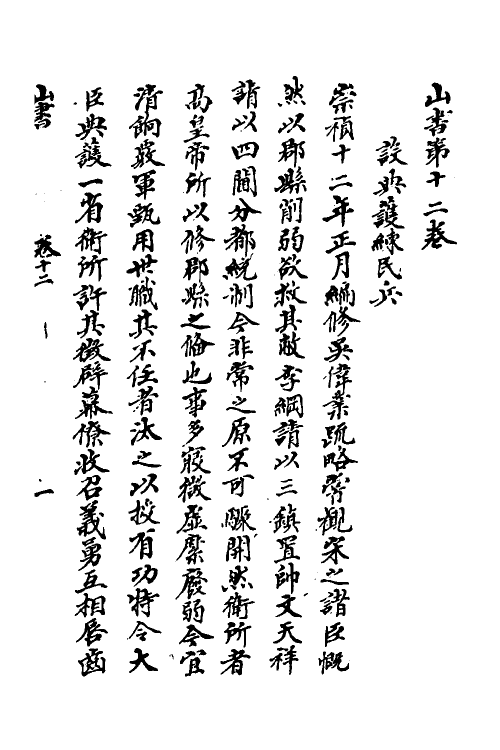 山書第十二卷
設典護練民兵
崇禎十二年正月編修吳偉業疏略嘗観宋之諸臣慨
然以郡縣削弱欲救其敝李綱請以三鎮置帥文天祥
請以四閫分都統制今非常之原不可驟開然衛所者
高皇帝所以修郡縣之偹也事多廢徵虛糜廢弱今宜
清餉覈軍甄用世職其不任者汰之以授有功特令大
臣典護一省衛所許其徵辟幕僚收召義勇互相唇齒
山書
卷十二
一